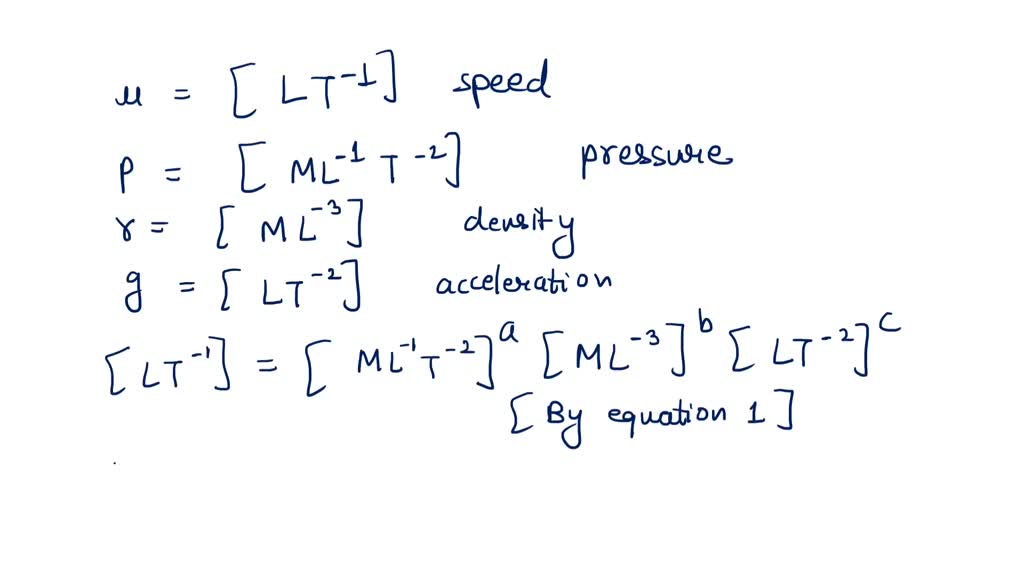 u = [ LT⁻¹] speed
P = [ ML⁻¹ T⁻²] pressure
r = [ ML⁻³] density
g = [ LT⁻²] acceleration
[LT⁻¹] = [ ML⁻¹T⁻²]ᵃ [ML⁻³]ᵇ [LT⁻²]ᶜ
[By equation 1]